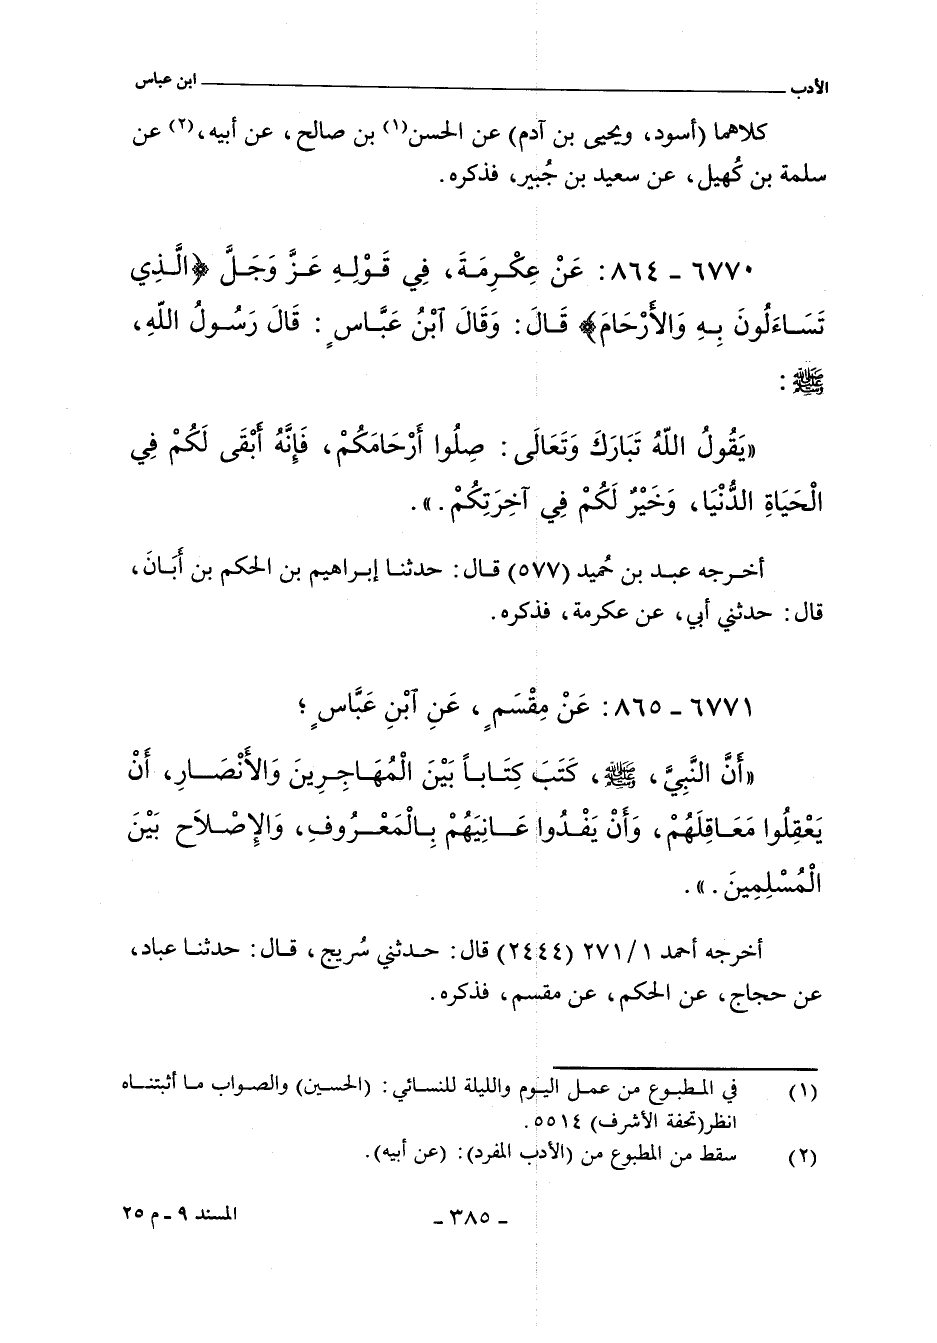 الأدب ــــــ ابن عباس
كلاهما (أسود، ويحيى بن آدم) عن الحسن(١) بن صالح، عن أبيه،(٢) عن
سلمة بن كُهيل، عن سعيد بن جُبير، فذكره.
٦٧٧٠ - ٨٦٤: عَنْ عِكْرِمَةَ، فِي قَوْلِهِ عَزَّ وَجَلَّ ﴿الَّذِي
تَسَاءَلُونَ بِهِ وَالأَرْحَامَ﴾ قَالَ: وَقَالَ ٱبْنُ عَبَّاسٍ: قَالَ رَسُولُ اللّهِ،
ﷺ:
«يَقُولُ اللّهُ تَبَارَكَ وَتَعَالَى: صِلُوا أَرْحَامَكُمْ، فَإِنَّهُ أَبْقَى لَكُمْ فِي
الْحَيَاةِ الدُّنْيَا، وَخَيْرٌ لَكُمْ فِي آخِرَتِكُمْ.».
أخرجه عبد بن حُميد (٥٧٧) قال: حدثنا إبراهيم بن الحكم بن أَبَانَ،
قال: حدثني أبي، عن عكرمة، فذكره.
٦٧٧١ - ٨٦٥: عَنْ مِقْسَمٍ، عَنِ ٱبْنِ عَبَّاسٍ؛
«أَنَّ النَّبِيَّ، ﷺ، كَتَبَ كِتَاباً بَيْنَ الْمُهَاجِرِينَ وَالأَنْصَارِ، أَنْ
يَعْقِلُوا مَعَاقِلَهُمْ، وَأَنْ يَفْدُوا عَانِيَهُمْ بِالْمَعْرُوفِ، وَالإِصْلاَحِ بَيْنَ
الْمُسْلِمِينَ.».
أخرجه أحمد ٢٧١/١ (٢٤٤٤) قال: حدثني سُريج، قال: حدثنا عباد،
عن حجاج، عن الحكم، عن مقسم، فذكره.
(١) في المطبوع من عمل اليوم والليلة للنسائي: (الحسين) والصواب ما أثبتناه
انظر(تحفة الأشرف) ٥٥١٤.
(٢) سقط من المطبوع من (الأدب المفرد): (عن أبيه).
- ٣٨٥ - المسند ٩ - م ٢٥